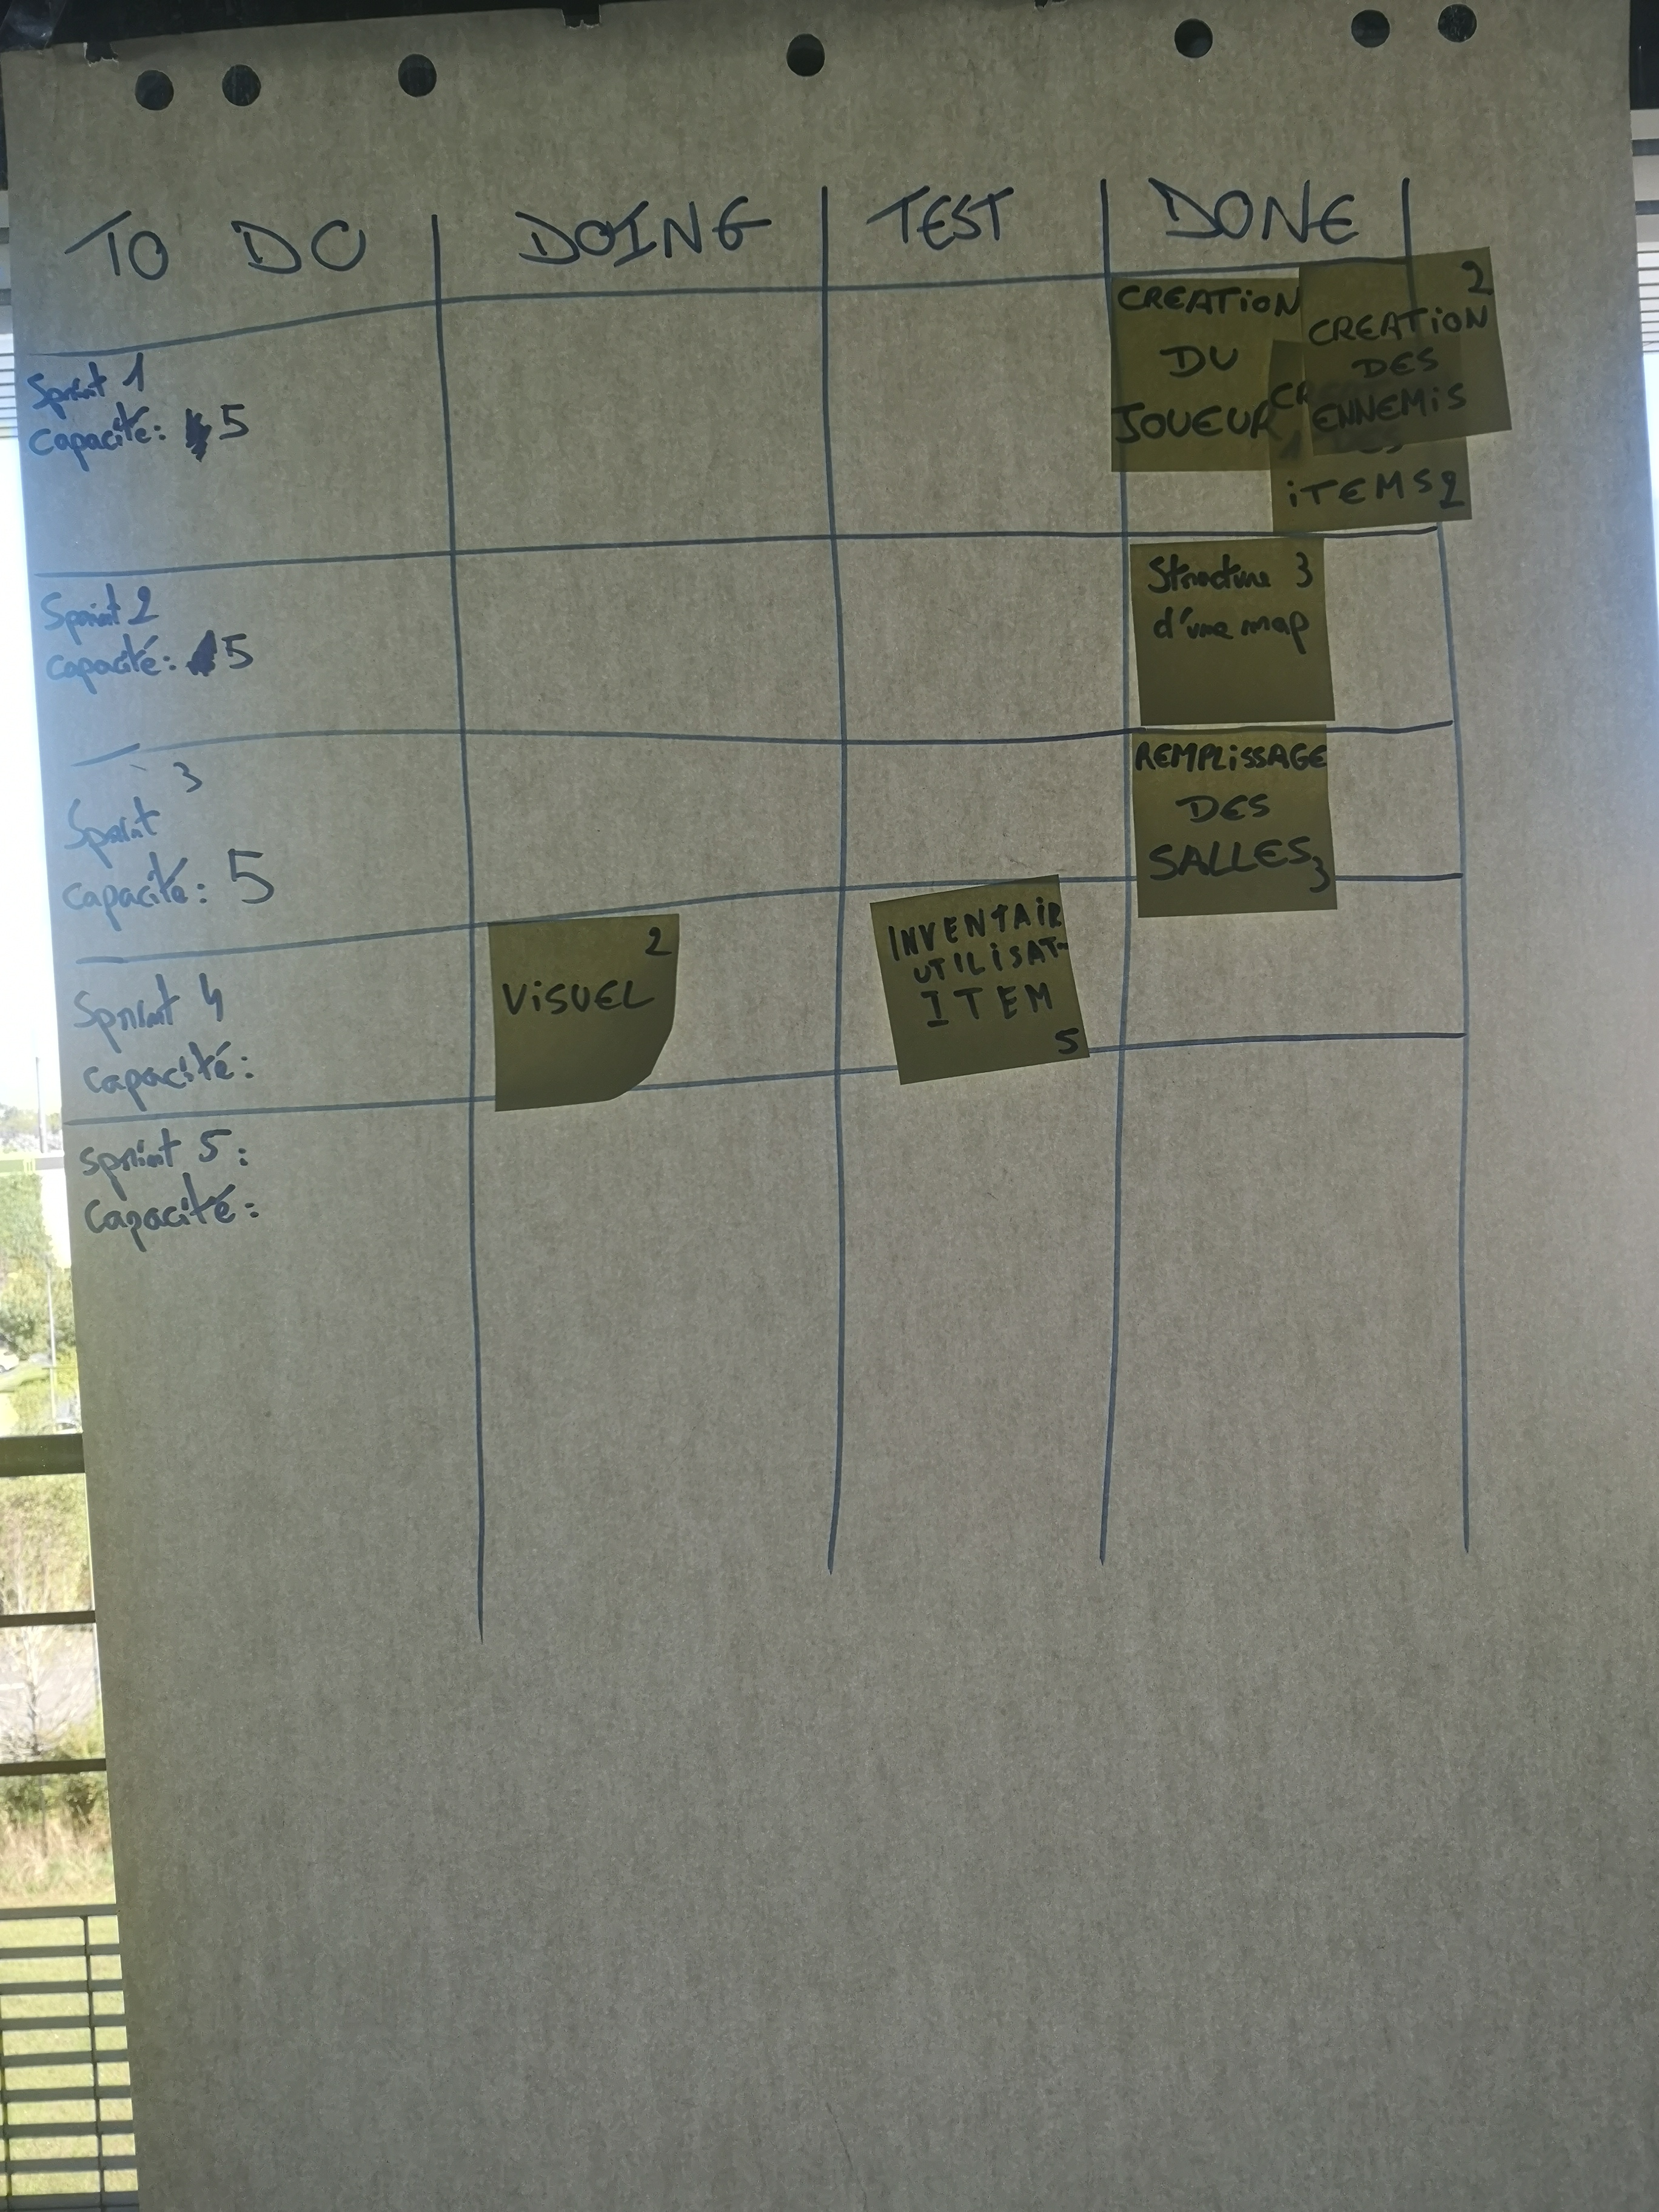 TO DO
DOING
TEST
DONE
Sprint 1
Capacité: 5
CREATION
DU
JOUEUR
1
2
CREATION
DES
ENNEMIS
CR
DES
ITEMS 2
Sprint 2
Capacité: 5
Structure 3
d'une map
3
Sprint
Capacité: 5
REMPLISSAGE
DES
SALLES 3
Sprint 4
Capacité:
2
VISUEL
INVENTAIR
UTILISAT-
ITEM
5
Sprint 5:
Capacité: